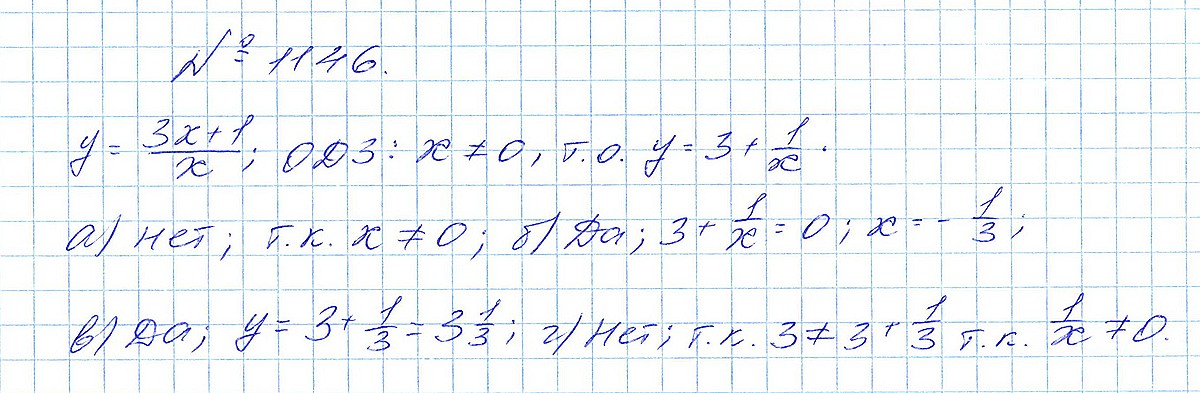 № 1146.
y = \frac{3x+1}{x}; ОДЗ: x ≠ 0, т.о. y = 3 + \frac{1}{x}.
а) Нет; т.к. x ≠ 0; б) Да; 3 + \frac{1}{x} = 0; x = - \frac{1}{3};
в) Да; y = 3 + \frac{1}{3} = 3\frac{1}{3}; г) Нет; т.к. 3 ≠ 3 + \frac{1}{3} т.к. \frac{1}{x} ≠ 0.